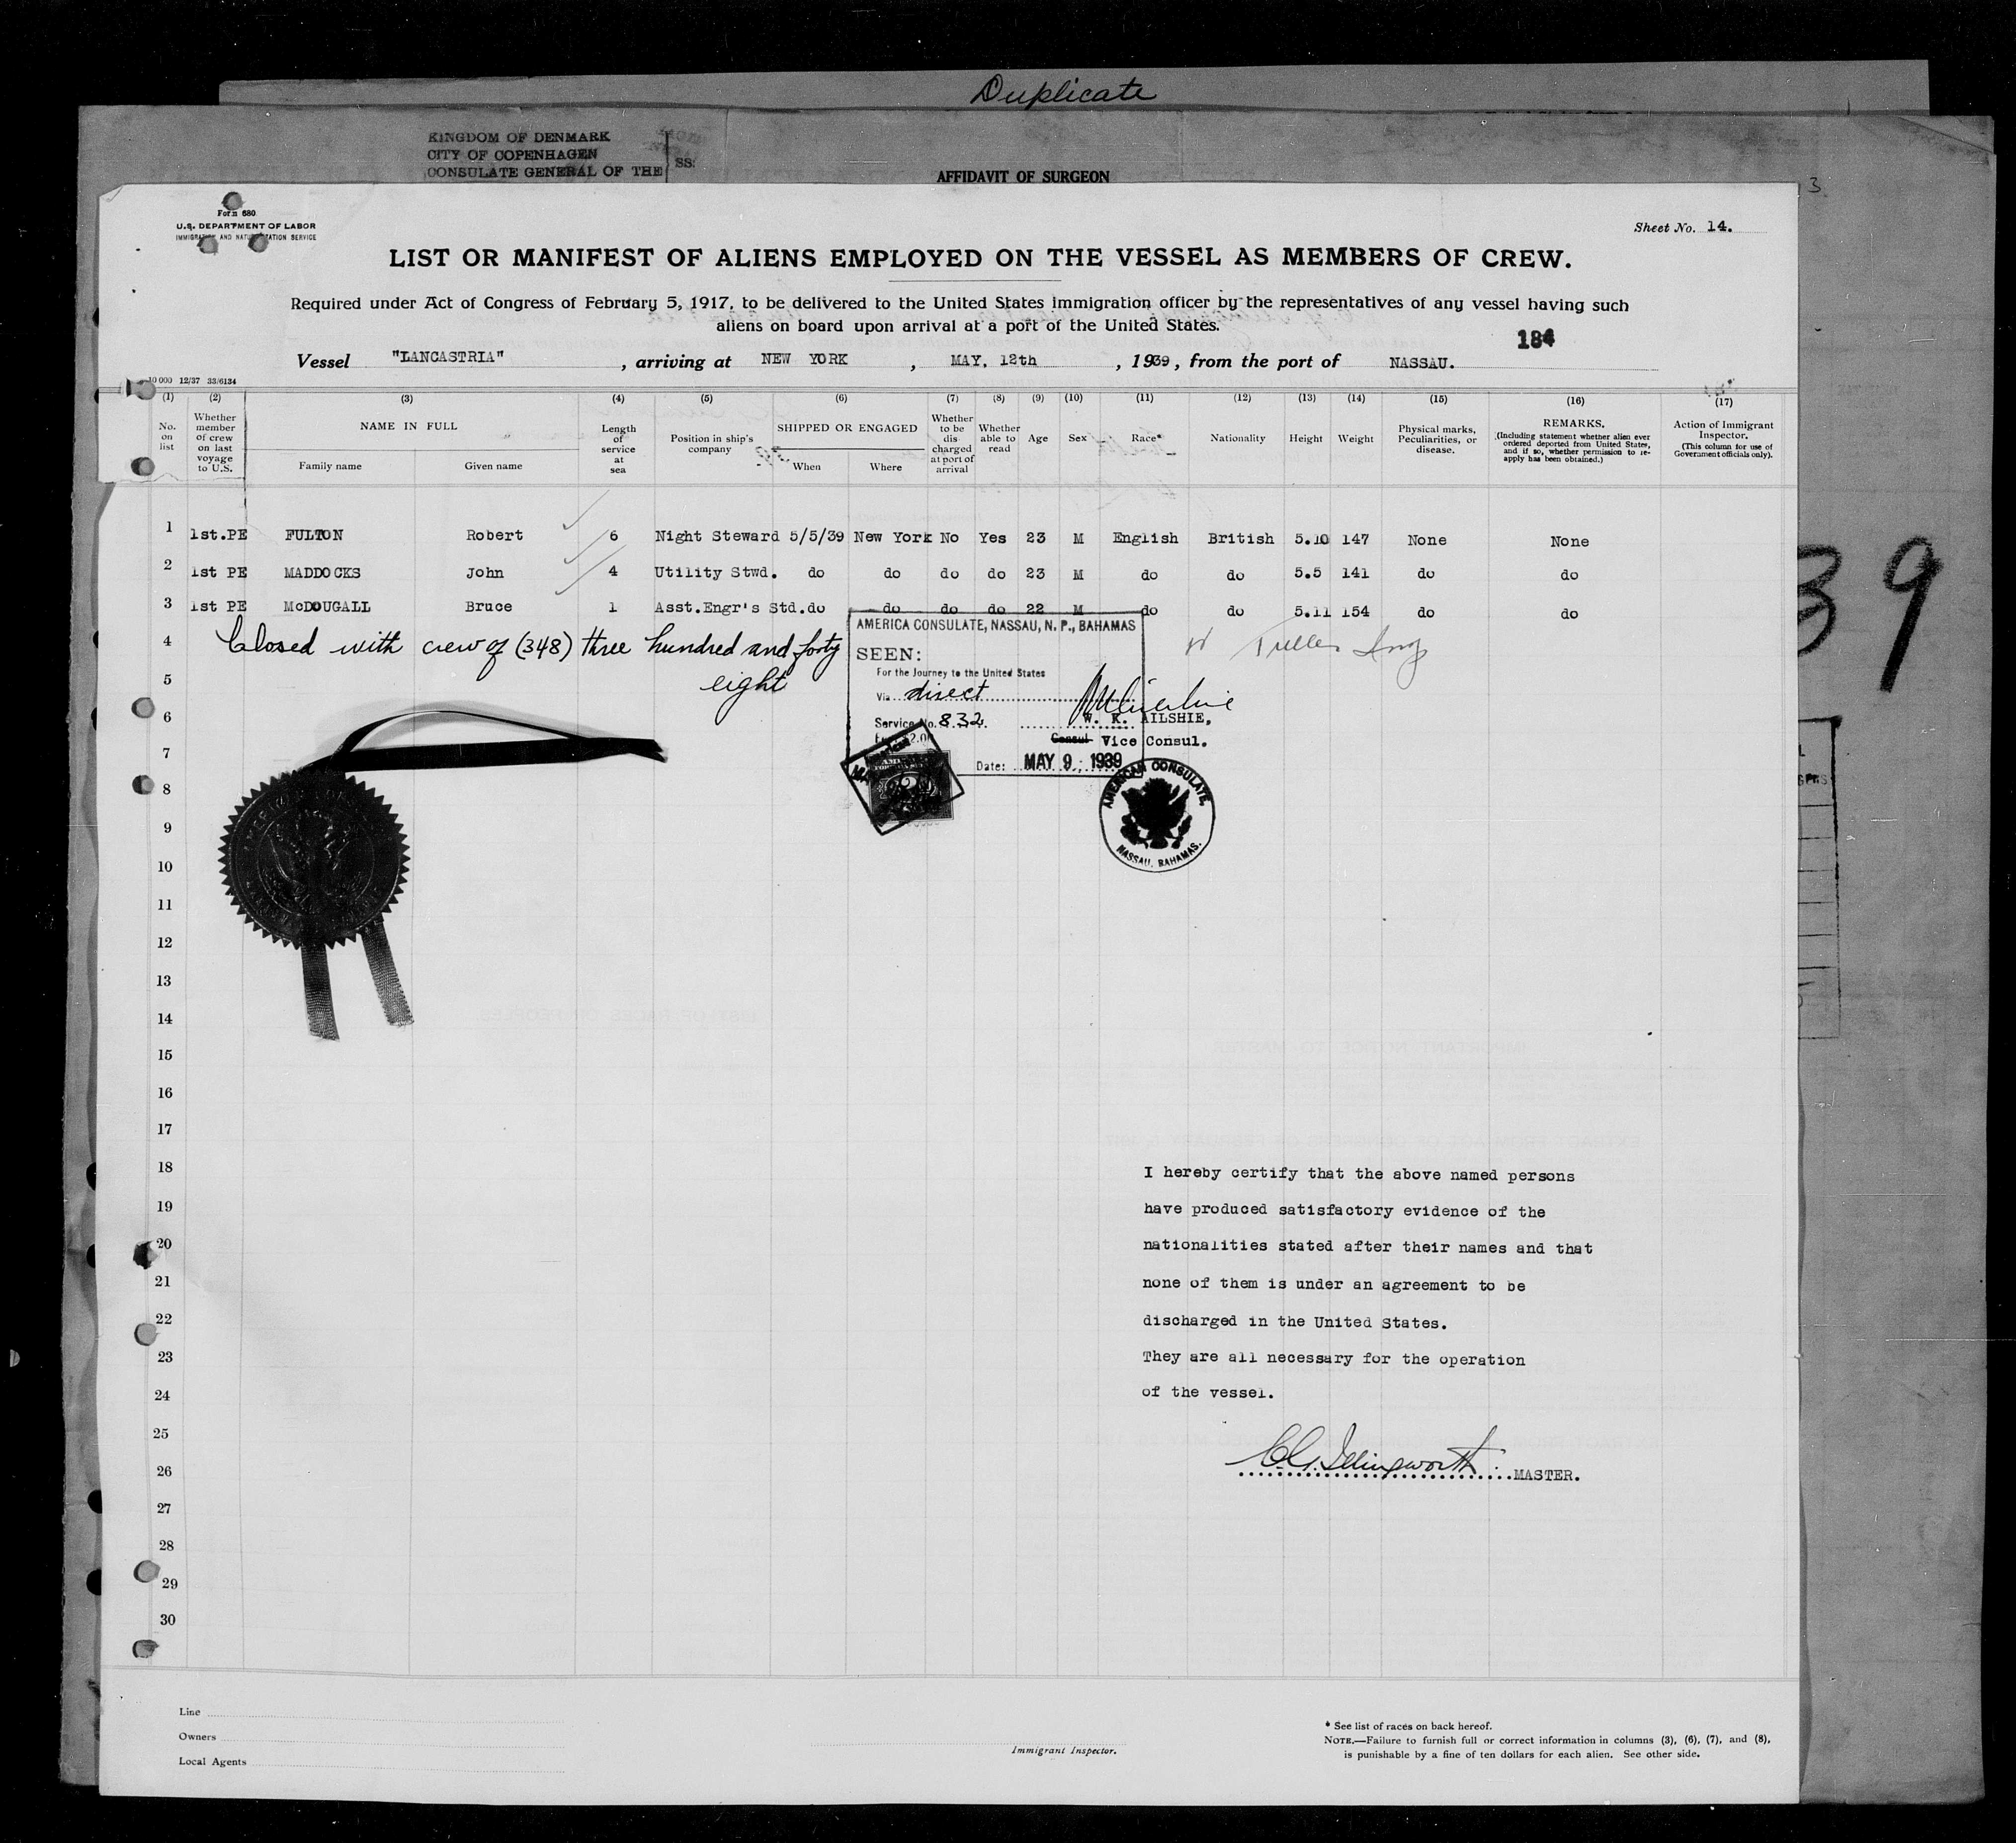 Duplicate
KINGDOM OF DENMARK
CITY OF COPENHAGEN
CONSULATE GENERAL OF THE
SS:
AFFIDAVIT OF SURGEON
3
Form 680
U.S. DEPARTMENT OF LABOR
IMMIGRATION AND NATURALIZATION SERVICE
Sheet No. 14.
LIST OR MANIFEST OF ALIENS EMPLOYED ON THE VESSEL AS MEMBERS OF CREW.
Required under Act of Congress of February 5, 1917, to be delivered to the United States immigration officer by the representatives of any vessel having such
aliens on board upon arrival at a port of the United States.
184
Vessel "LANCASTRIA", arriving at NEW YORK, MAY, 12th, 1939, from the port of NASSAU.
10 000 12/37 33/6134
(1) (2) (3) (4) (5) (6) (7) (8) (9) (10) (11) (12) (13) (14) (15) (16) (17)
No. on list
Whether member of crew on last voyage to U.S.
NAME IN FULL
Family name Given name
Length of service at sea
Position in ship's company
SHIPPED OR ENGAGED
When Where
Whether to be discharged at port of arrival
Whether able to read
Age
Sex
Race*
Nationality
Height
Weight
Physical marks, Peculiarities, or disease.
REMARKS.
(Including statement whether alien ever ordered deported from United States, and if so, whether permission to re-apply has been obtained.)
Action of Immigrant Inspector.
(This column for use of Government officials only).
1 1st.PE FULTON Robert 6 Night Steward 5/5/39 New York No Yes 23 M English British 5.10 147 None None
2 1st PE MADDOCKS John 4 Utility Stwd. do do do do 23 M do do 5.5 141 do do
3 1st PE McDOUGALL Bruce 1 Asst.Engr's Std. do do do do 22 M do do 5.11 154 do do
4 Closed with crew of (348) three hundred and forty
5 eight
AMERICA CONSULATE, NASSAU, N. P., BAHAMAS
SEEN:
For the Journey to the United States
Via direct
Service No. 832
W. K. AILSHIE,
Consul Vice Consul.
Date: MAY 9, 1939
AMERICAN CONSULATE,
NASSAU, BAHAMAS.
39
6
7
8
9
10
11
12
13
14
15
16
17
18
19
20
21
22
23
24
25
26
27
28
29
30
I hereby certify that the above named persons
have produced satisfactory evidence of the
nationalities stated after their names and that
none of them is under an agreement to be
discharged in the United States.
They are all necessary for the operation
of the vessel.
MASTER.
Line
Owners
Local Agents
Immigrant Inspector.
* See list of races on back hereof.
NOTE.—Failure to furnish full or correct information in columns (3), (6), (7), and (8),
is punishable by a fine of ten dollars for each alien. See other side.